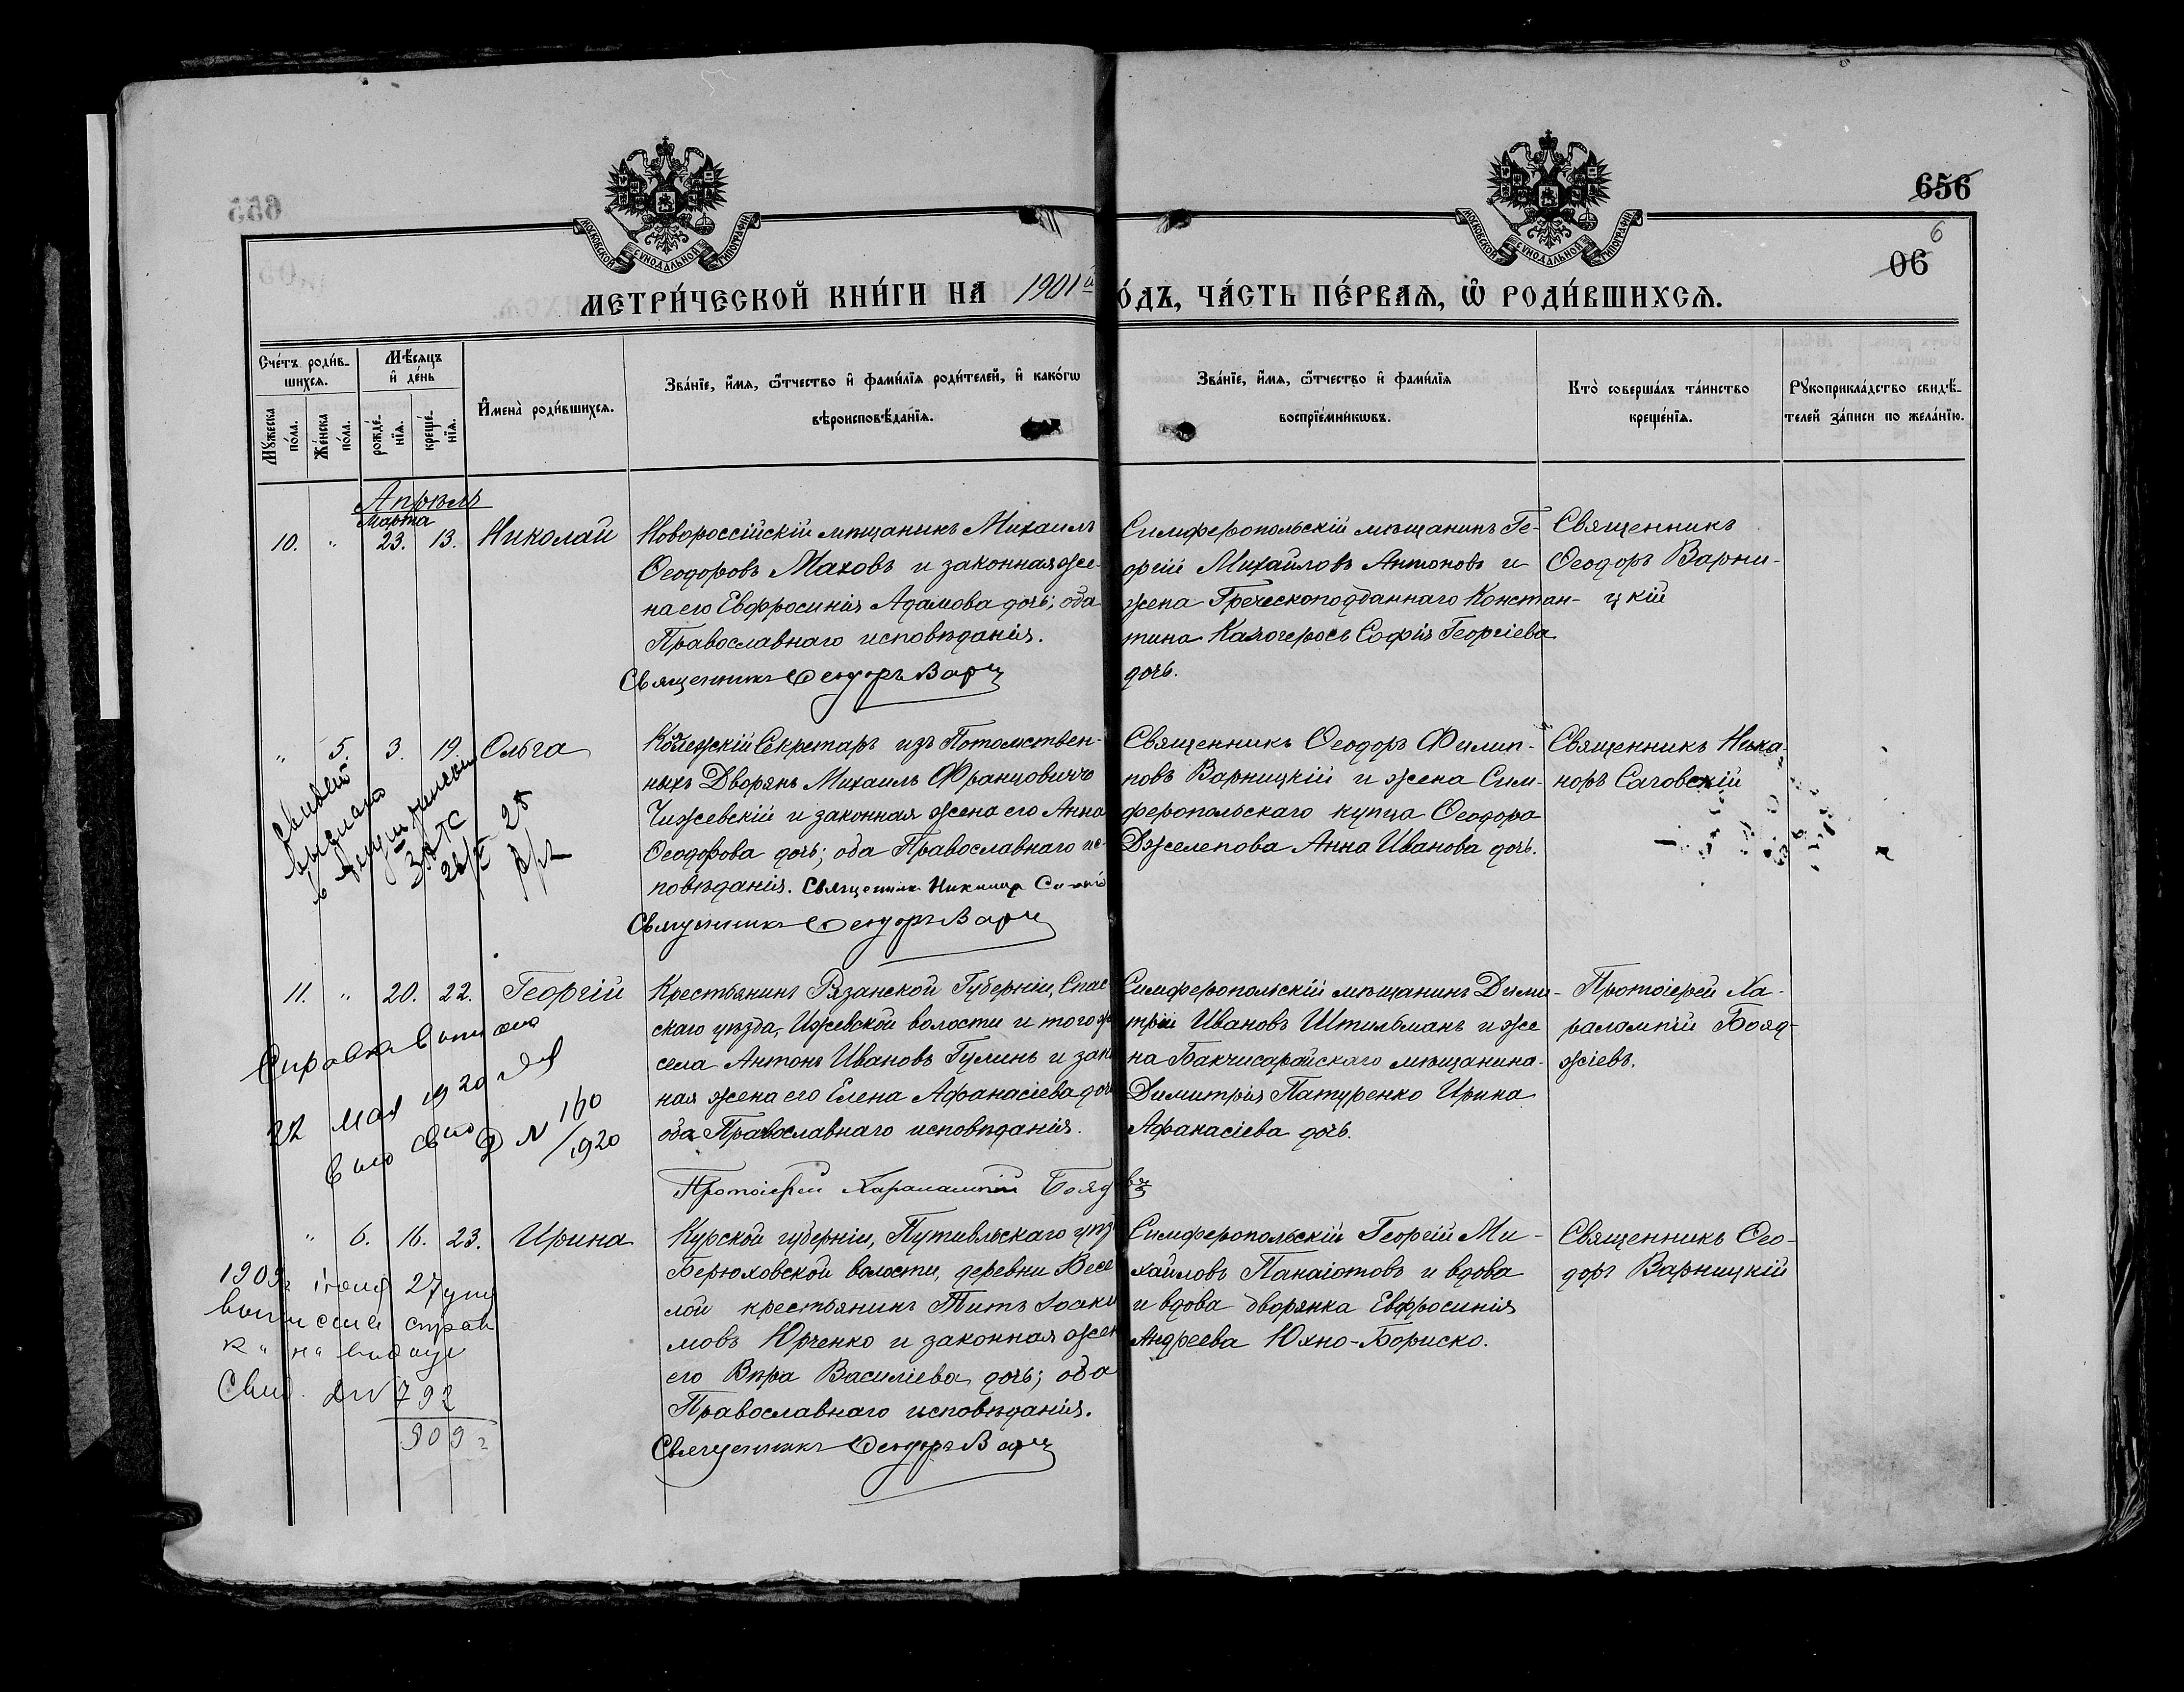 656
6
06
МОСКОВСКОЙ СѴНОДАЛЬНОЙ ТИПОГРАФІИ
МОСКОВСКОЙ СѴНОДАЛЬНОЙ ТИПОГРАФІИ
МЕТРИ́ЧЕСКОЙ КНИ́ГИ НА 1901й
О́ДЪ, ЧА́СТЬ ПЕ́РВАѦ, Ѡ҆ РОДИ́ВШИХСѦ.
Сче́тъ роди́в-
шихсѧ.
Мѣ́сѧцъ
и҆ де́нь
Мꙋ́жеска
по́ла.
Же́нска
по́ла.
рожде́-
нїѧ.
креще́-
нїѧ.
И҆мена̀ роди́вшихсѧ.
Зва́нїе, и҆́мѧ, ѻ҆́тчество и҆ фами́лїѧ роди́телей, и҆ како́гѡ
вѣроисповѣ́данїѧ.
Зва́нїе, и҆́мѧ, ѻ҆́тчество и҆ фами́лїѧ
воспрїе́мникѡвъ.
Кто̀ соверша́лъ та́инство
креще́нїѧ.
Рꙋкоприкла́дство свидѣ́-
телей за́писи по жела́нїю.
Апрѣль
Марта
10. " 23. 13. Николай
Новороссійскій мѣщанинъ Михаилъ
Ѳеодоровъ Маховъ и законная же-
на его Евфросинія Адамова дочь; оба
Православнаго исповѣданія.
Священникъ Ѳеодоръ Варн
Симферопольскій мѣщанинъ Ге-
оргій Михайловъ Антоновъ и
жена Греческоподданнаго Констан-
тина Калогеросъ Софія Георгіева
дочь.
Священникъ
Ѳеодоръ Варни-
цкій
" 5. 3. 19. Ольга
Колежскій Секретарь изъ Потомствен-
ныхъ Дворянъ Михаилъ Францовичъ
Чижевскій и законная жена его Анна
Ѳеодорова дочь; оба Православнаго ис-
повѣданія. Священникъ Никаноръ
Священникъ Ѳеодоръ Варн
Священникъ Ѳеодоръ Филип-
повъ Варницкій и жена Сим-
феропольскаго купца Ѳеодора
Джелепова Анна Иванова дочь.
Священникъ Ника-
норъ Саговскій
ЗАГС
28
11. " 20. 22. Георгій
Справка
22 мая 1920 года
N 160
/1920
Крестьянинъ Рязанской Губерніи, Спас
скаго уѣзда, Ижевской волости и того ж
села Антонъ Ивановъ Гулинъ и закон
ная жена его Елена Афанасіева дочь
оба Православнаго исповѣданія.
Протоіерей Харалампій Бояд
Симферопольскій мѣщанинъ Дими-
трій Ивановъ Штильманъ и же
на Бакчисарайскаго мѣщанина
Димитрія Патуренко Ирина
Афанасіева дочь.
Протоіерей Ха-
ралампій Бояд-
жіевъ.
" 6. 16. 23. Ирина
1909г іюня 27 дня
792
909г
Курской губерніи, Путивльскаго уѣз
Берюховской волости, деревни Весе
лой крестьянинъ Титъ Іоаки
мовъ Юрченко и законная жен
его Вѣра Василіева дочь; оба
Православнаго исповѣданія.
Священникъ Ѳеодоръ Варн
Симферопольскій Георгій Ми-
хайловъ Панаіотовъ и вдова
и вдова дворянка Евфросинія
Андреева Юхно-Бориско.
Священникъ Ѳео-
доръ Варницкій